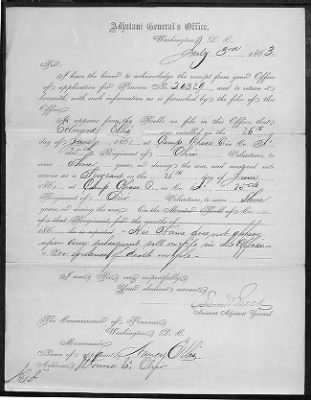 Adjutant General's Office,
Washington, D. C.
July 3rd 1863
Sir:
I have the honor to acknowledge the receipt from your Office
of application for Pension No. 20329 and to return it
herewith, with such information as is furnished by the files of this
Office.
It appears from the Rolls on file in this Office, that
Edward Ellis was enrolled on the 26th
day of 1861 at Camp Chase O in Co.
Regiment of Ohio Volunteers, to
serve Three years, or during the war, and mustered into
service as a Sergeant on the 26th of June
1861, at Camp Chase O in Co.
Regiment of Ohio Volunteers, to serve three
years, or during the war. On the Muster Roll of Co.
of that Regiment, for the months of
186 he is reported His name does not appear
upon any subsequent roll on file in this Office
No evidence of death on file
I am Sir, very respectfully,
Your obedient servant,
Assistant Adjutant General
The Commissioner of Pensions,
Washington, D. C.
Memoranda:
Name of applicant, Nancy Ellis
Address, Ohio